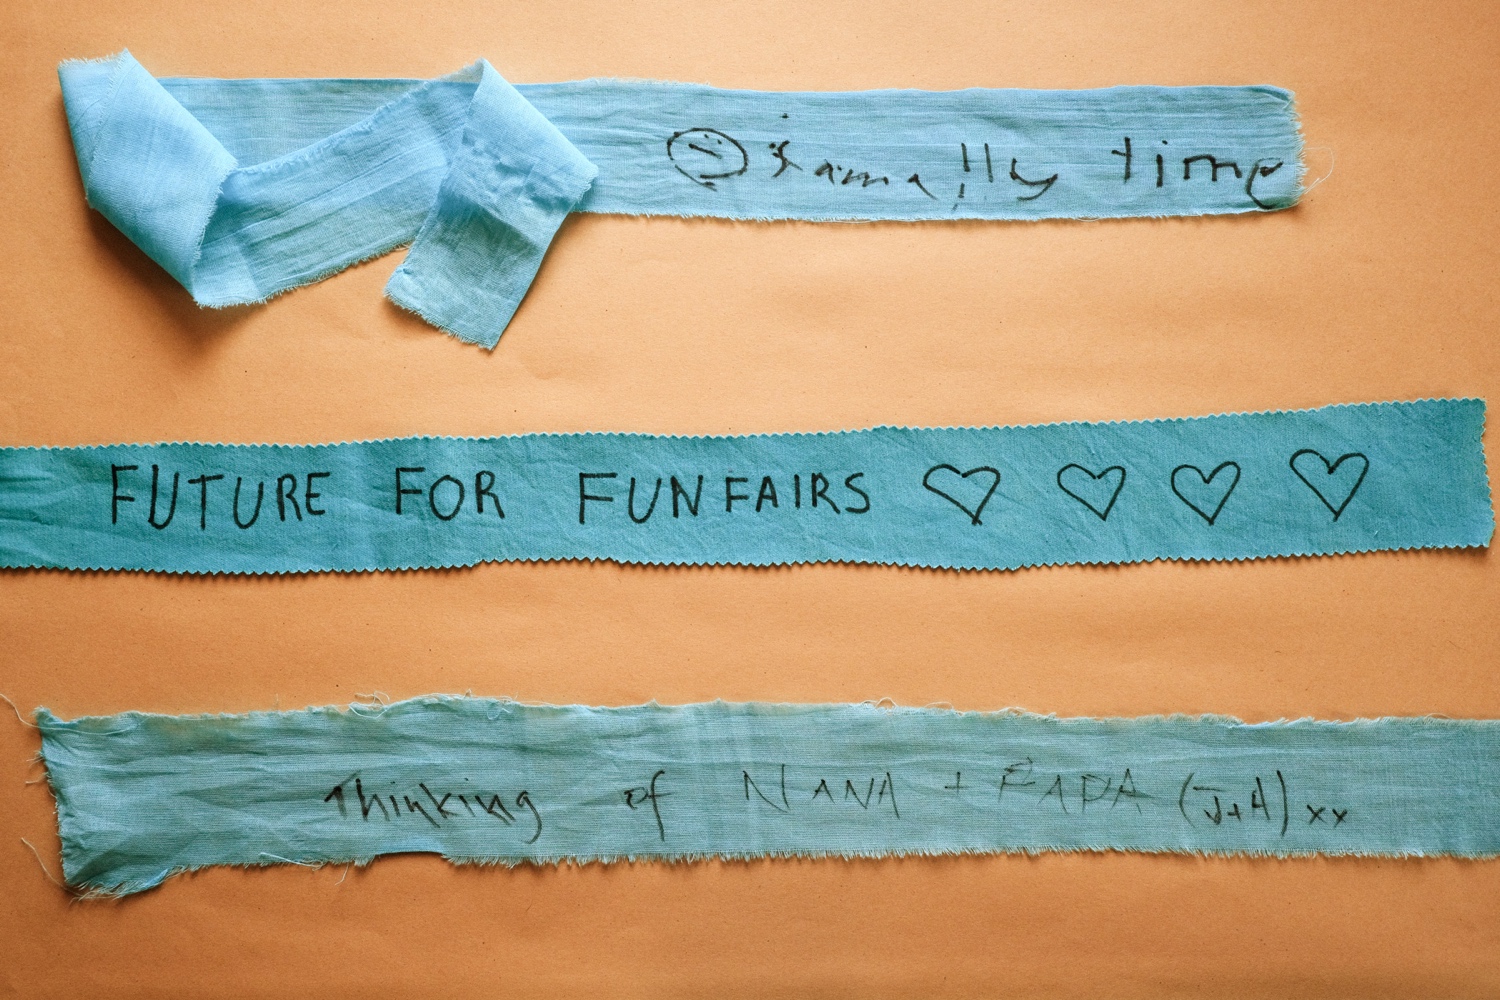 time
FUTURE FOR FUNFAIRS ♡ ♡ ♡ ♡
Thinking of NANA + PAPA (J+A) xx